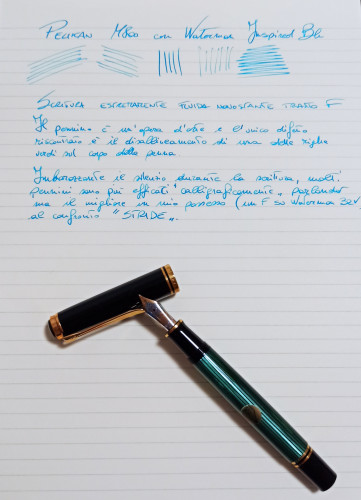 Pelikan M800 con Waterman Inspired Blu
Scrittura estremamente fluida nonostante tratto F
Il pennino è un'opera d'arte e l'unico difetto
riscontrato è il disallineamento di una delle righe
verdi sul corpo della penna
Imbarazzante il silenzio durante la scrittura, molti
pennini sono più efficaci "calligraficamente" parlando
ma il migliore in mio possesso (un F su Waterman
al confronto "STRIDE".